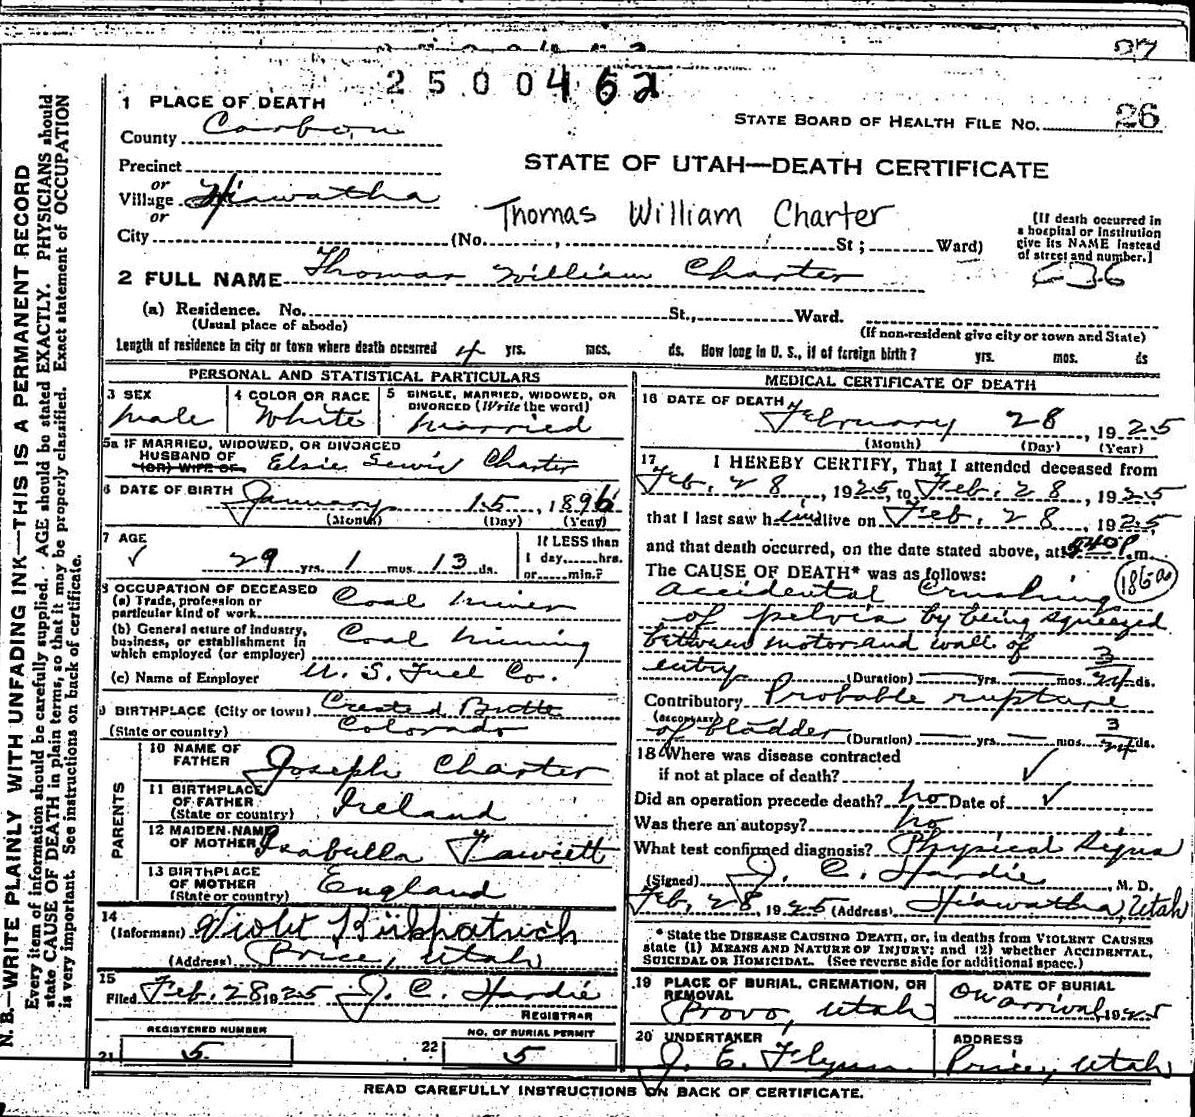 27
2500462
1 PLACE OF DEATH
County Carbon
STATE BOARD OF HEALTH FILE NO. 26
Precinct
or
STATE OF UTAH—DEATH CERTIFICATE
Village Hiawatha
or
Thomas William Charter
City (No. , St; Ward)
(If death occurred in
a hospital or institution
give its NAME instead
of street and number.]
636
2 FULL NAME Thomas William Charter
(a) Residence. No. St., Ward.
(Usual place of abode) (If non-resident give city or town and State)
Length of residence in city or town where death occurred 4 yrs. mos. ds. How long in U. S., if of foreign birth? yrs. mos. ds
PERSONAL AND STATISTICAL PARTICULARS
3 SEX
Male
4 COLOR OR RACE
White
5 SINGLE, MARRIED, WIDOWED, OR
DIVORCED (Write the word)
Married
5a IF MARRIED, WIDOWED, OR DIVORCED
HUSBAND OF
(OR) WIFE OF Elsie Lewis Charter
6 DATE OF BIRTH January 15, 1896
(Month) (Day) (Year)
7 AGE
29 yrs. 1 mos. 13 ds.
If LESS than
1 day, hrs.
or min.?
8 OCCUPATION OF DECEASED
(a) Trade, profession or
particular kind of work Coal Miner
(b) General nature of industry,
business, or establishment in
which employed (or employer) Coal Mining
(c) Name of Employer U. S. Fuel Co.
9 BIRTHPLACE (City or town) Crested Butte
(State or country) Colorado
PARENTS
10 NAME OF
FATHER Joseph Charter
11 BIRTHPLACE
OF FATHER
(State or country) Ireland
12 MAIDEN NAME
OF MOTHER Isabella Fawcett
13 BIRTHPLACE
OF MOTHER
(State or country) England
14
(Informant) Violet Kirkpatrick
(Address) Price, Utah
15
Filed Feb. 28 1925 J. C. Hardie
REGISTRAR
REGISTERED NUMBER
21 5
NO. OF BURIAL PERMIT
22 5
MEDICAL CERTIFICATE OF DEATH
16 DATE OF DEATH
February 28, 1925
(Month) (Day) (Year)
17 I HEREBY CERTIFY, That I attended deceased from
Feb. 28, 1925, to Feb. 28, 1925
that I last saw him alive on Feb. 28, 1925
and that death occurred, on the date stated above, at 540 P.m.
The CAUSE OF DEATH* was as follows:
Accidental Crushing
of pelvis by being squeezed
between motor and wall of
entry (Duration) yrs. mos. 3/24 ds.
Contributory Probable rupture
(SECONDARY)
of bladder (Duration) yrs. mos. 3/24 ds.
18 Where was disease contracted
if not at place of death?
Did an operation precede death? no Date of
Was there an autopsy? no
What test confirmed diagnosis? Physical Signs
(Signed) J. C. Hardie M. D.
Feb, 28, 1925 (Address) Hiawatha, Utah
* State the DISEASE CAUSING DEATH, or, in deaths from VIOLENT CAUSES
state (1) MEANS AND NATURE OF INJURY; and (2) whether ACCIDENTAL,
SUICIDAL OR HOMICIDAL. (See reverse side for additional space.)
19 PLACE OF BURIAL, CREMATION, OR
REMOVAL
Provo, Utah
DATE OF BURIAL
On arrival, 1925
20 UNDERTAKER
J. E. Flynn
ADDRESS
Price, Utah
READ CAREFULLY INSTRUCTIONS ON BACK OF CERTIFICATE.
N. B.—WRITE PLAINLY WITH UNFADING INK—THIS IS A PERMANENT RECORD
Every item of information should be carefully supplied. AGE should be stated EXACTLY. PHYSICIANS should
state CAUSE OF DEATH in plain terms, so that it may be properly classified. Exact statement of OCCUPATION
is very important. See instructions on back of certificate.